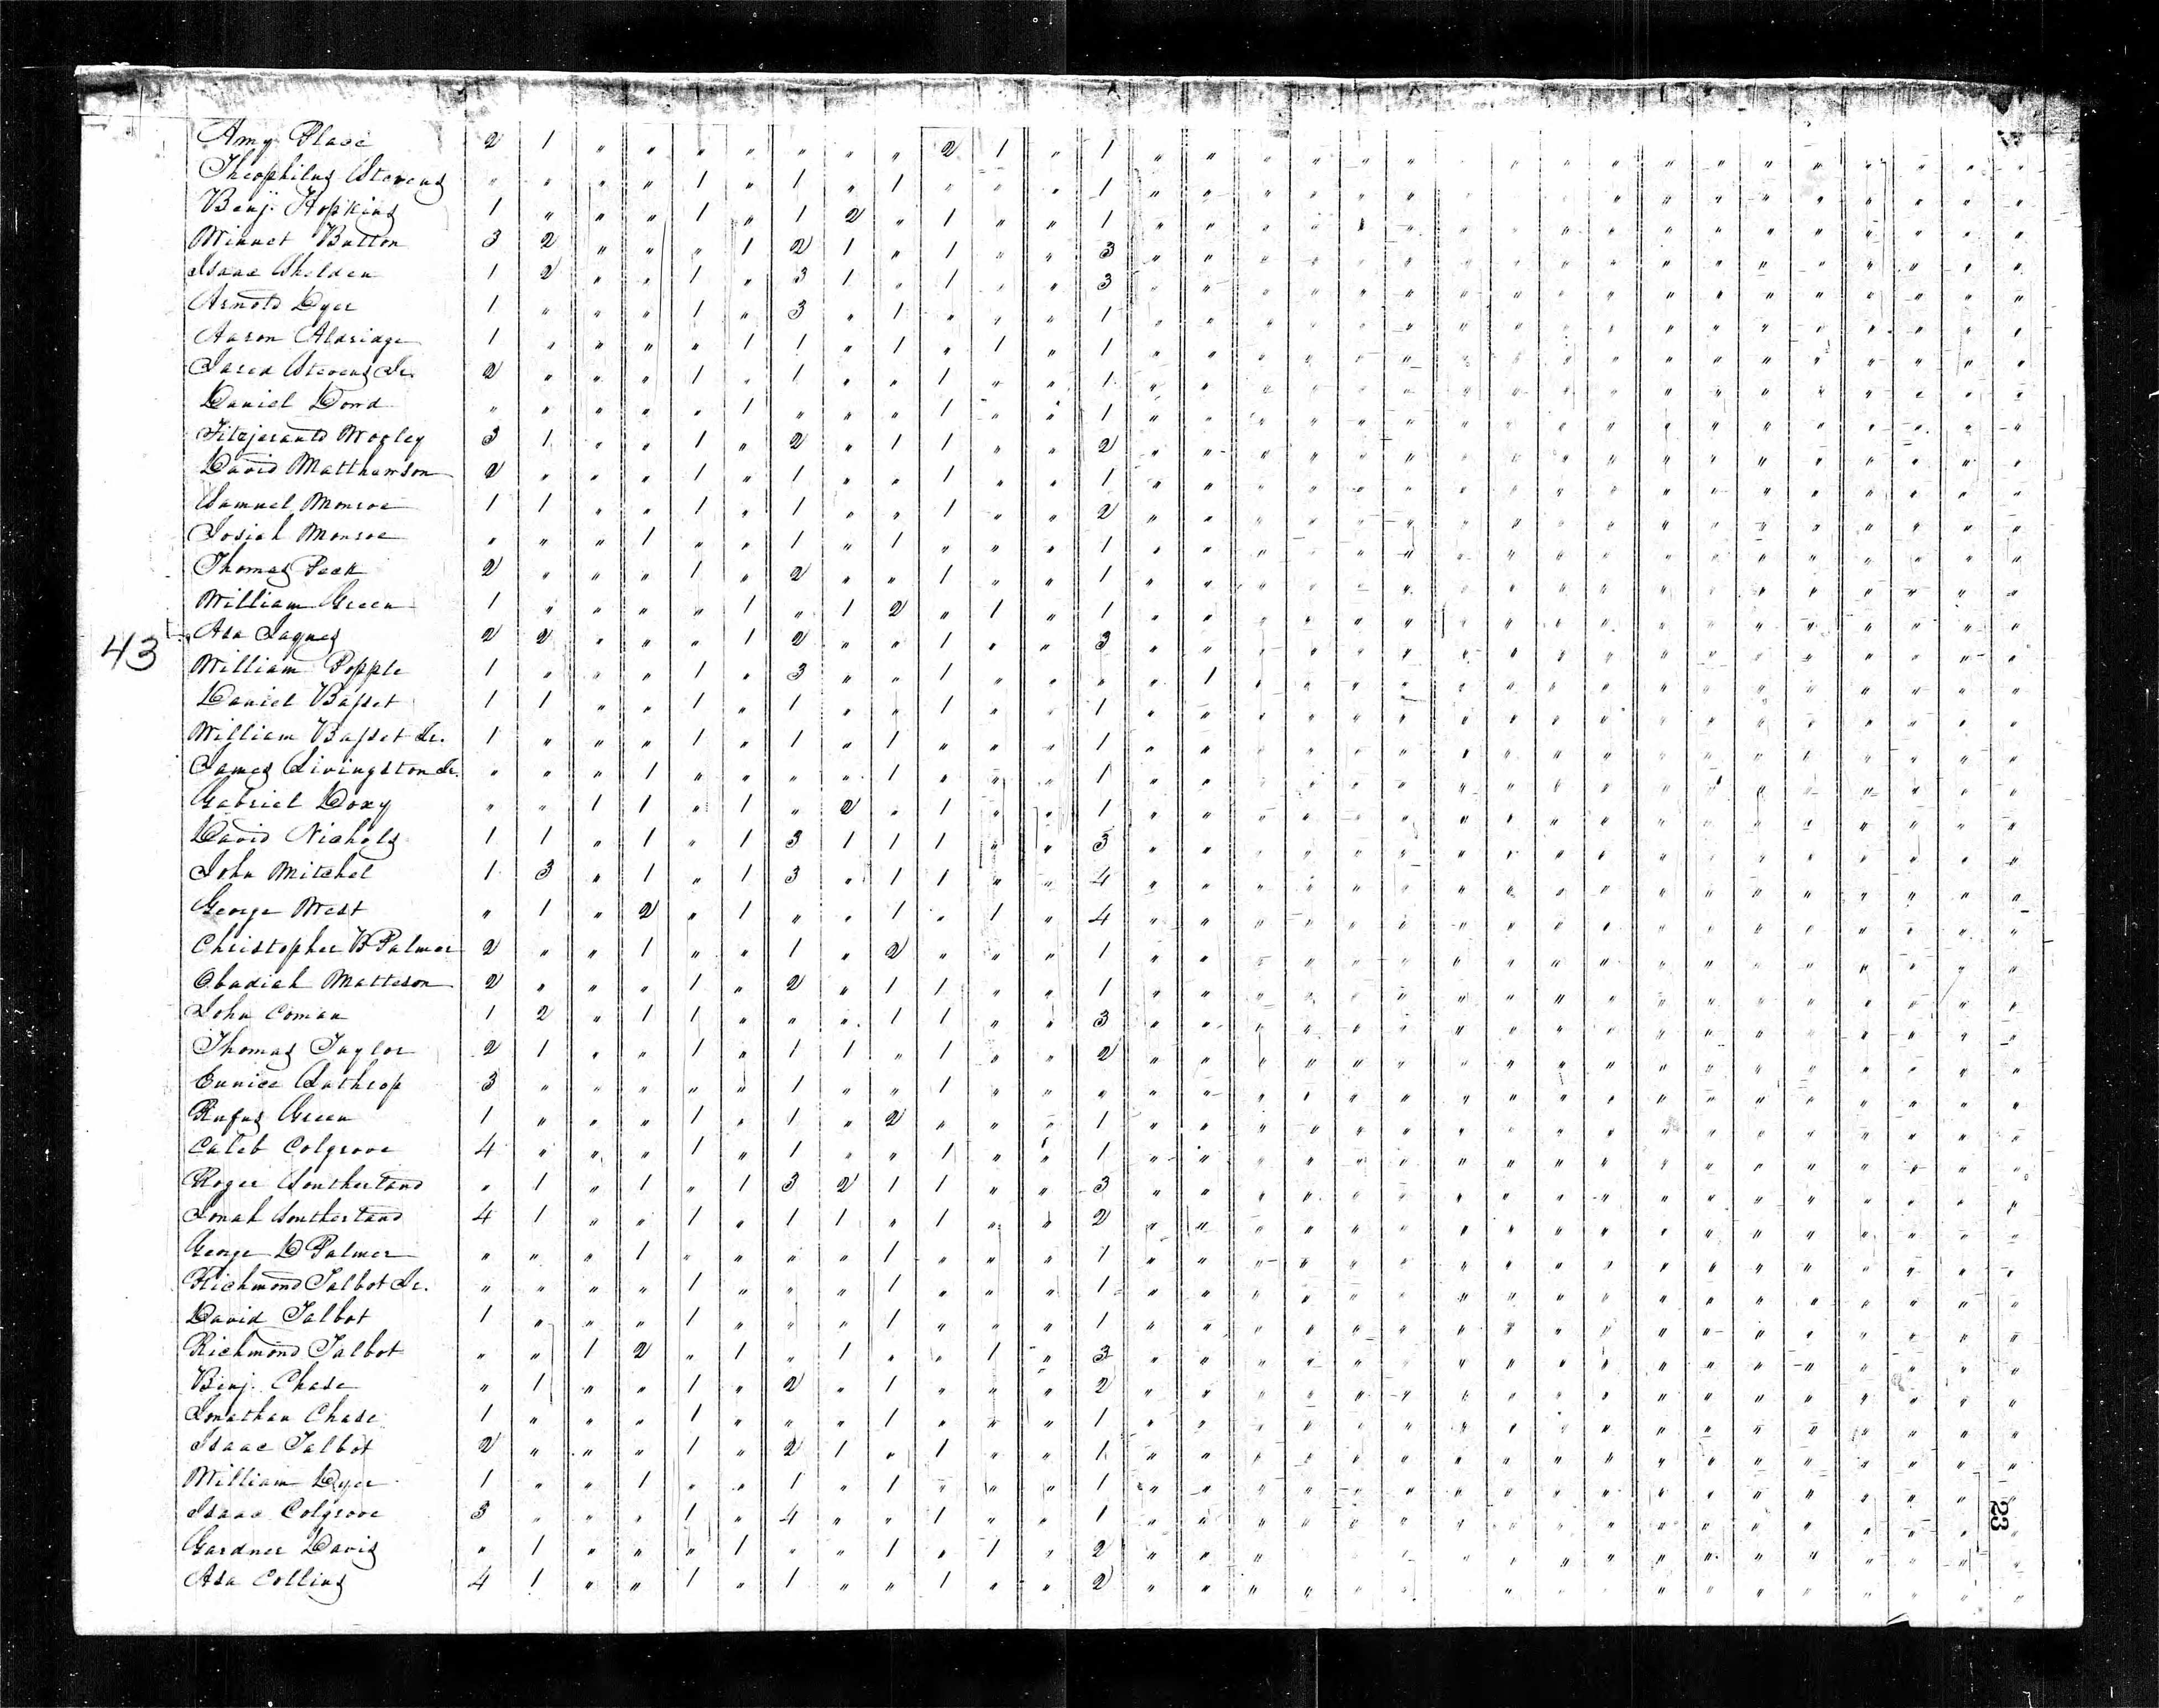 Amy Place 2 1 " " " " " " " 2 1 " 1
Theophilus Stevens " " " " 1 " 1 " 1 " " " 1
Benj. Hopkins 1 " " " 1 " 1 2 " 1 " " 1
Button 3 2 " " " 1 2 1 " 1 " " 3
Isaac Shelden 1 2 " " 1 " 3 1 " 1 " " 3
Arnold Dyer 1 " " " 1 " 3 " 1 " " " 1
Aaron Aldridge 1 " " " " 1 1 " 1 " 1 " 1
Jared Stevens Jr. 2 " " " 1 " 1 " " 1 " " 1
Daniel Dowd " " " " " 1 " " " 1 " " 1
3 1 " " 1 " 2 " 1 1 " " 2
David Matthewson 2 " " " 1 " 1 " " 1 " " 1
Samuel Monroe 1 1 " " 1 " 1 " " 1 " " 2
Josiah Monroe " " " 1 " " 1 " 1 " " " 1
Thomas Peck 2 " " " 1 " 2 " " 1 " " 1
William Green 1 " " " " 1 " 1 2 " 1 " 1
43 Asa Jaques 2 2 " " " 1 2 " " 1 " " 3
William Popple 1 " " " 1 " 3 " " 1 " " " " 1
Daniel Basset 1 1 " " 1 " 1 " " 1 " " 1
William Basset Jr. 1 " " " 1 " 1 " 1 " " " 1
James Livingston Jr. " " " 1 " " " " 1 " " " 1
Gabriel Doxy " " 1 1 " 1 " 2 " 1 " " 1
David Nichols 1 1 " 1 " 1 3 1 1 1 " " 3
John Mitchel 1 3 " 1 " 1 3 " 1 1 " " 4
George West " 1 " 2 " 1 " " 1 " 1 " 4
Christopher B Palmer 2 " " 1 " " 1 " 2 " " " 1
Obadiah Matteson 2 " " " 1 " 2 " 1 1 " " 1
John Coman 1 2 " 1 1 " " " 1 1 " " 3
Thomas Taylor 2 1 " " 1 " 1 1 " 1 " " 2
Eunice Lathrop 3 " " " " " 1 " " 1 " " "
Rufus Green 1 " " " 1 " 1 " 2 " " " 1
Caleb Colgrove 4 " " " 1 " 1 " " 1 " " 1
Roger Southerland " 1 " 1 " 1 3 2 1 1 " " 3
Jonah Southerland 4 1 " " 1 " 1 1 " 1 " " 2
George D Palmer " " " 1 " " " " 1 " " " 1
Richmond Talbot Jr. " " " " 1 " " " 1 " " " 1
David Talbot 1 " " " 1 " " " 1 " " " 1
Richmond Talbot " " 1 2 " 1 " 1 " " 1 " 3
Benj. Chase " 1 " " 1 " 2 " 1 " " " 2
Jonathan Chase 1 " " " 1 " " " 1 " " " 1
Isaac Talbot 2 " " " 1 " 2 1 " 1 " " 1
William Dyer 1 " " 1 " " 1 " 1 " " " 1
Isaac Colgrove 3 " " " 1 " 4 " " 1 " " 1
23
Gardner Davis " 1 " " " 1 " " 1 " 1 " 2
Asa Collins 4 1 " " 1 " 1 " " 1 " " 2